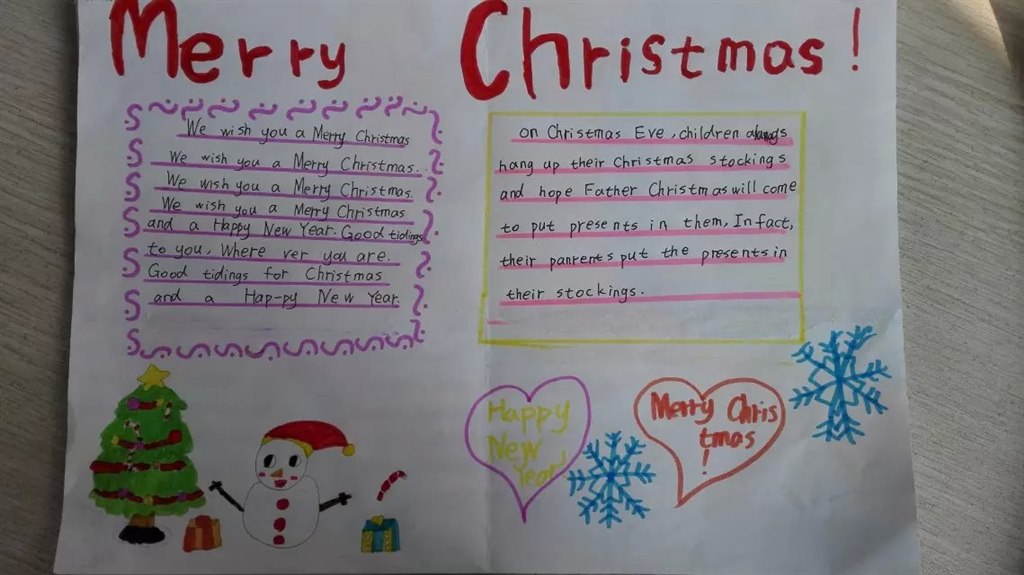 Merry Christmas!
We wish you a Merry Christmas
We wish you a Merry Christmas..
We wish you a Merry Christmas.
We wish you a Merry Christmas
and a Happy New Year. Good tidings
to you, Where ver you are.
Good tidings for Christmas
and a Hap-py New Year.
on Christmas Eve, children
hang up their Christmas stockings
and hope Father Christmas will come
to put presents in them, In fact,
their panrents put the presents in
their stockings.
Happy
New
Year!
Merry Chris
tmas
!